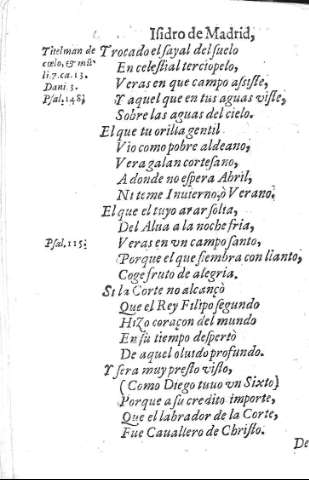 Isidro de Madrid,
Titelman de
cœlo, & mũ
li. 7. ca. 13.
Dani 3.
Psal. 148.
Trocado el sayal del suelo
En celestial terciopelo,
Veras en que campo assiste,
Y aquel que en tus aguas viste,
Sobre las aguas del cielo.
El que tu orilia gentil
Vio como pobre aldeano,
Vera galan cortesano,
A donde no espera Abril,
Ni teme Inuierno, ò Verano.
El que el tuyo arar solta,
Del Alua a la noche fria,
Psal. 115.
Veras en vn campo santo,
Porque el que siembra con llanto,
Coge fruto de alegria.
Si la Corte no alcançò
Que el Rey Filipo segundo
Hizo coraçon del mundo
En su tiempo despertò
De aquel oluido profundo.
Y sera muy presto visto,
(Como Diego tuuo vn Sixto)
Porque a su credito importe,
Que el labrador de la Corte,
Fue Cauallero de Christo.
De